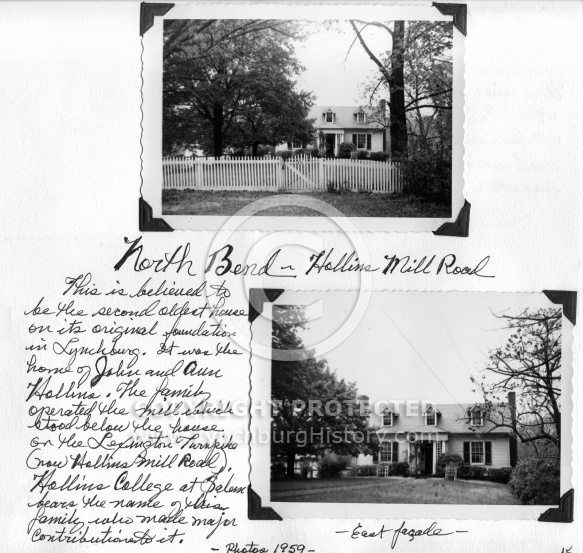 North Bend ~ Hollins Mill Road
This is believed to
be the second oldest house
on its original foundation
in Lynchburg. It was the
home of John and Ann
Hollins. The family
operated the mill which
stood below the house
on the Lexington Turnpike
(now Hollins Mill Road).
Hollins College at Salem
bears the name of this
family who made major
contributions to it.
COPYRIGHT PROTECTED
www.LynchburgHistory.com
- East façade -
- Photos 1959 -